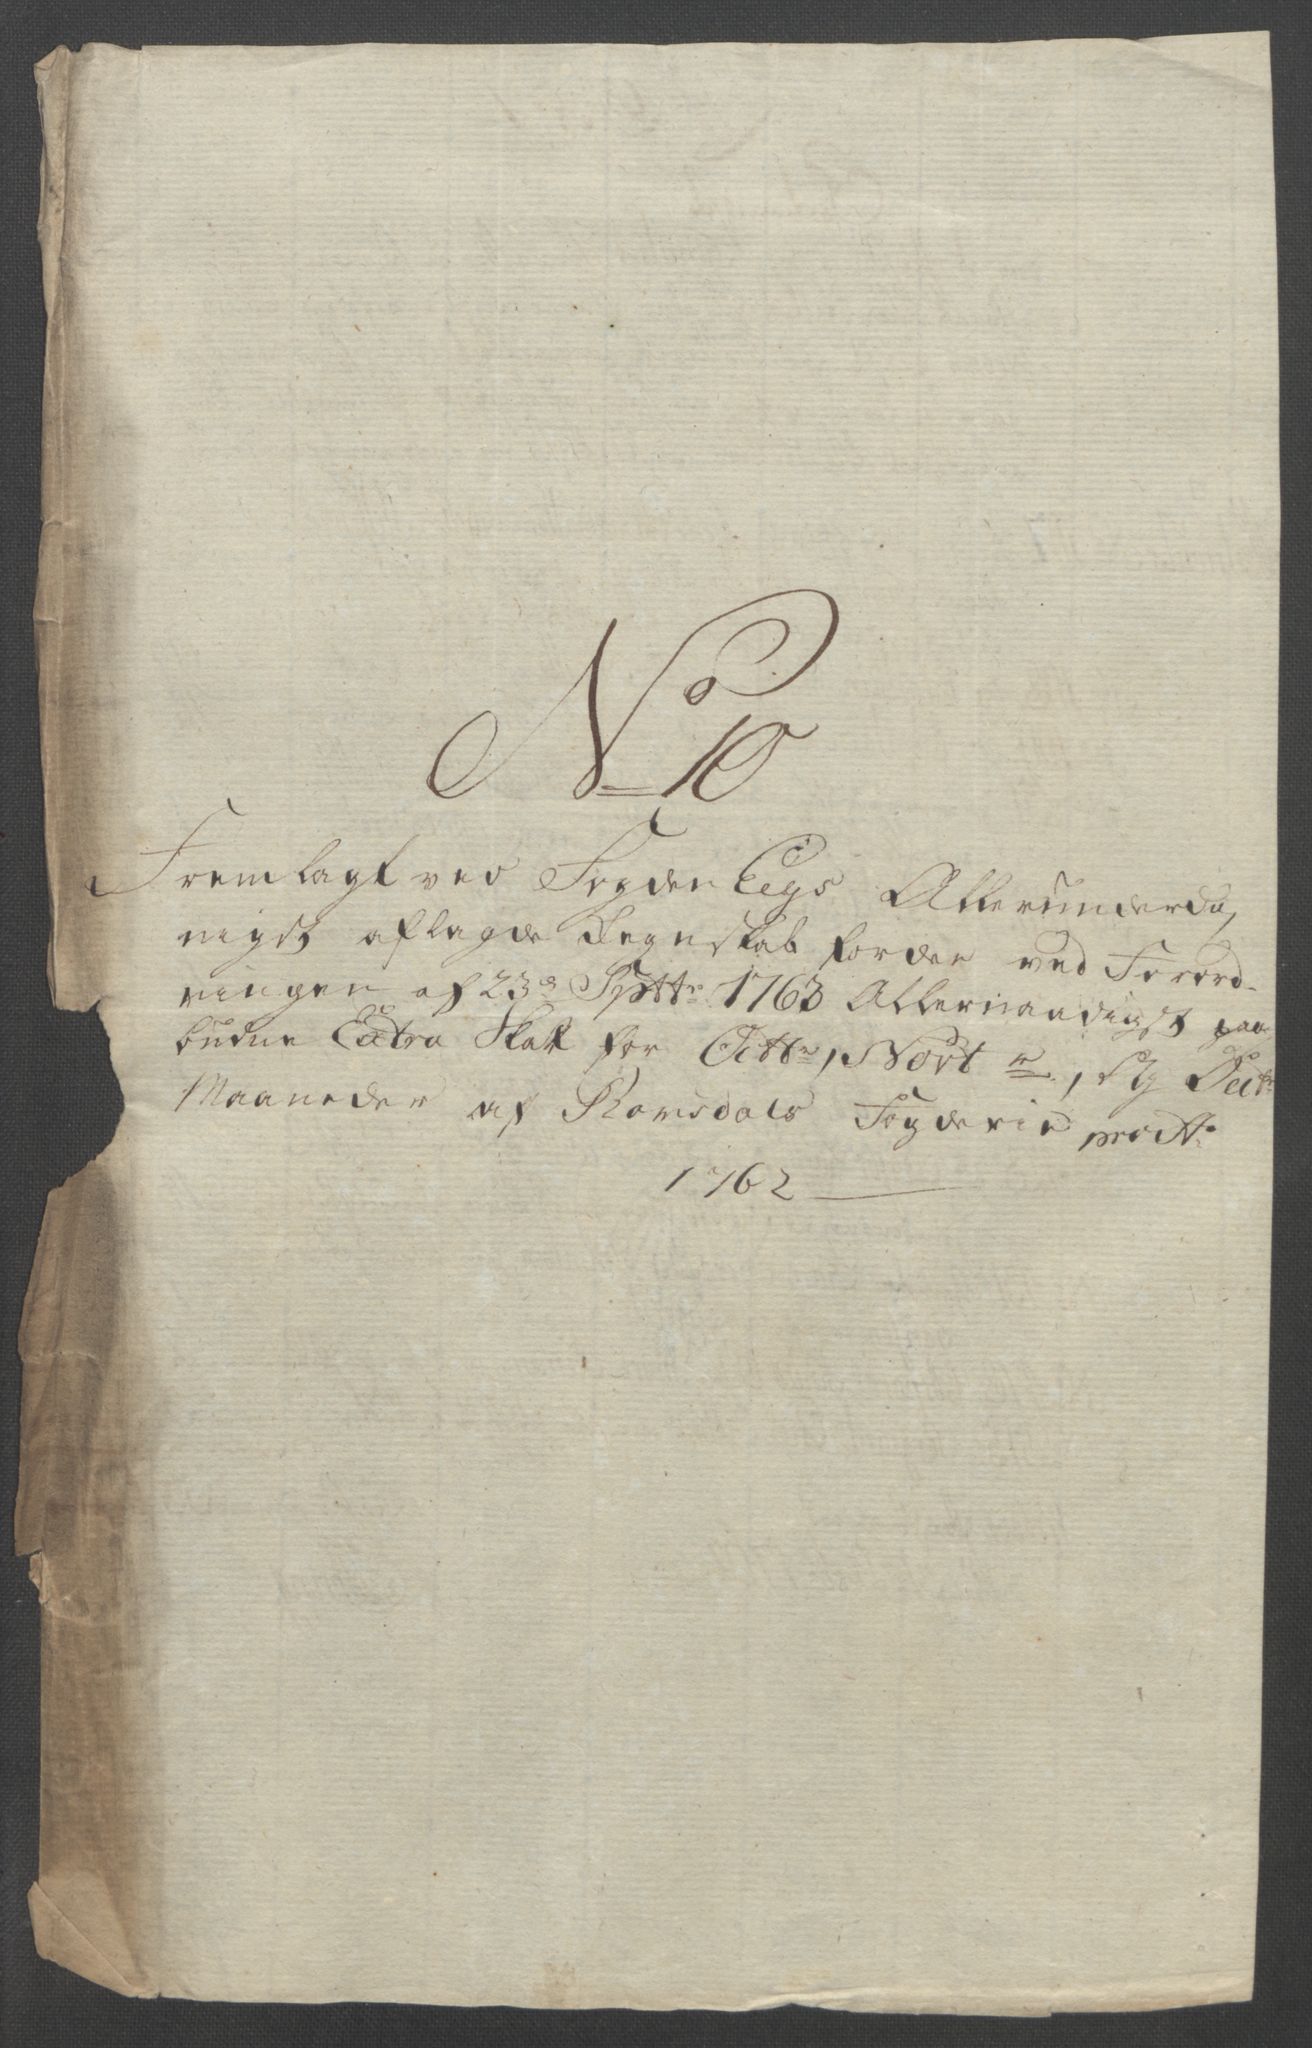 No 10
Fremlagt ved Fogden Eegs Allerunderdaa,
nigst aflagde Regnskab for den ved Forord-
ningen af 23de Septbr 1762 Allernaadigst paa-
budne Extra Skat for Octbr, Novbr, Og Decbr
Maaneder af Romsdals Fogderie pro Ao
1762